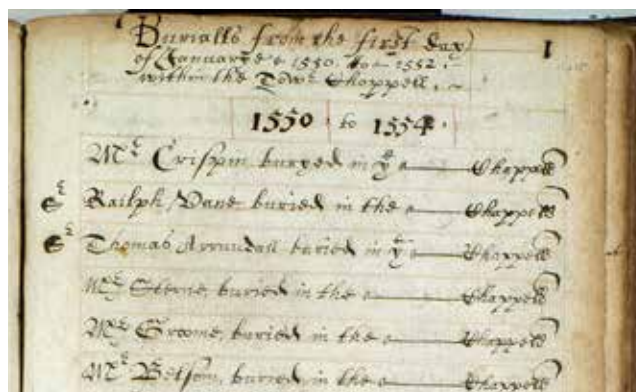 Burialls from the first day 1
of Januarye 1550. to 1552.
within the Towr Chappell.
1550 to 1554.
Mr Crispin, buryed in ye Chappell
Sr Railph Vane buried in the Chappell
Sr Thomas Arrundall buried in ye Chappell
Mr Sterne, buried in the Chappell
Mr Groome, buried in the Chappell
Mr Betson, buried in the Chappell